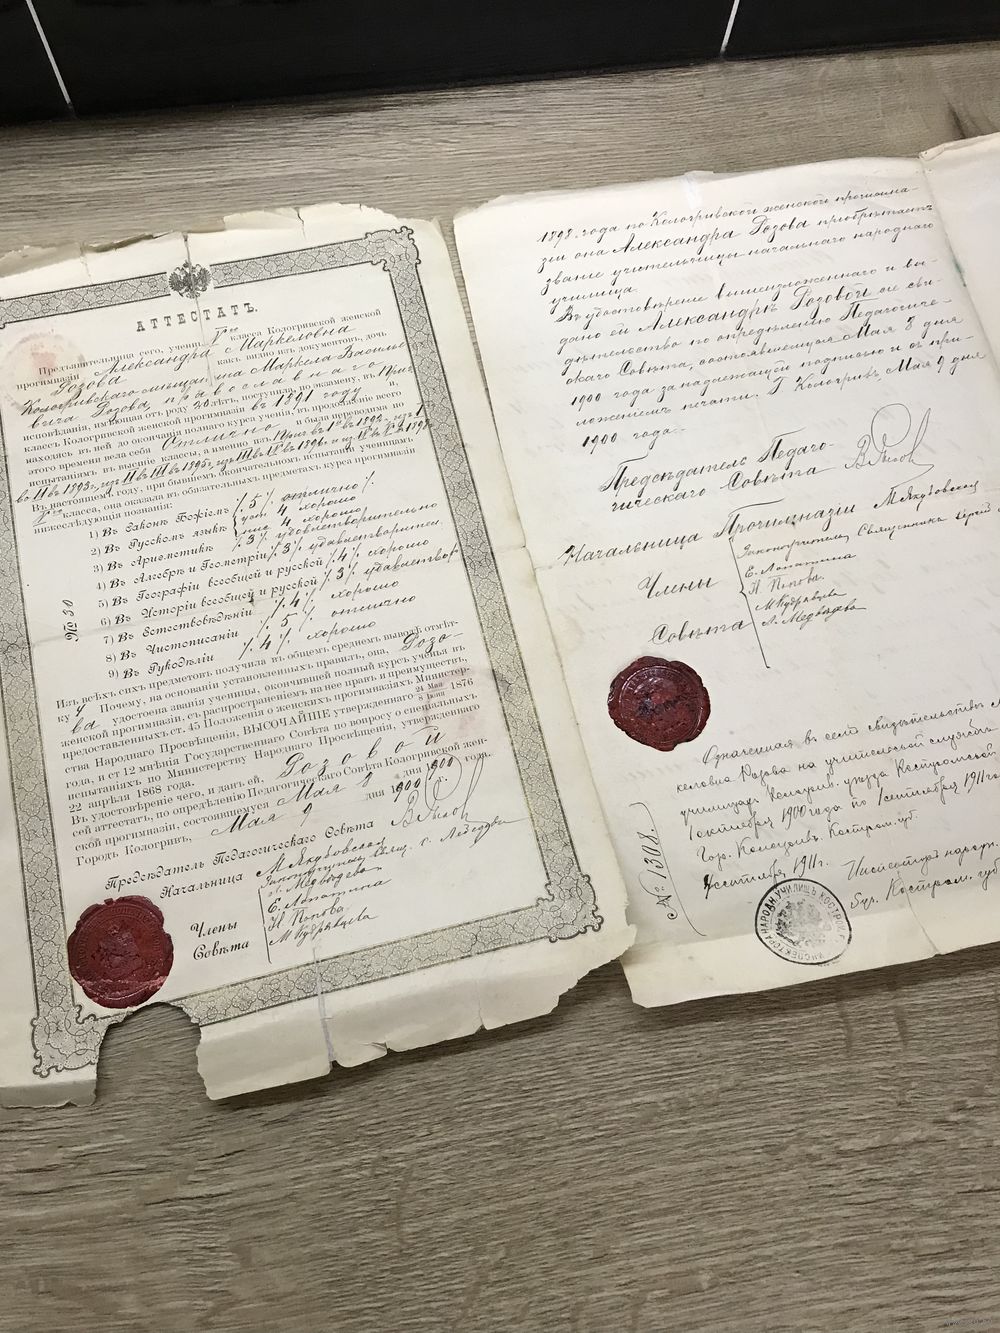 АТТЕСТАТЪ.
Предъявительница сего, учениц V класса Кологривской женской
прогимназіи Александра Маркеловна
Розова какъ видно изъ документовъ, дочь
Кологривскаго мѣщанина Маркела Василье
вича Розова, православнаго
исповѣданія, имѣющая отъ роду лѣтъ, поступила, по экзамену, въ Приг
классъ Кологривской женской прогимназіи въ 1891 году и,
находясь въ ней до окончанія полнаго курса ученія, въ продолженіе всего
этого времени вела себя Отлично и была переводима по
испытаніямъ въ высшіе классы, а именно изъ Приг въ I въ 1892, изъ I
во II въ 1893 г., изъ II въ III въ 1895 г., изъ III въ IV въ 1896 г. и изъ IV въ V въ 1898
Въ настоящемъ году, при бывшемъ окончательномъ испытаніи ученицамъ
V класса, она оказала въ обязательныхъ предметахъ курса прогимназіи
нижеслѣдующія познанія:
1) Въ Законѣ Божіемъ 5 отлично
2) Въ Русскомъ языкѣ уст. 4 хорошо
4 хорошо
3) Въ Ариѳметикѣ 3 удовлетворительно
4) Въ Алгебрѣ и Геометріи 3 удовлетворител.
5) Въ Географіи всеобщей и русской 4 хорошо
6) Въ Исторіи всеобщей и русской 3 удовлетвор
7) Въ Естествовѣдѣніи 4 хорошо
8) Въ Чистописаніи 5 отлично
9) Въ Рукодѣліи 4 хорошо
№ 30
Изъ всѣхъ сихъ предметовъ получила въ общемъ среднемъ выводѣ отмѣт-
ку 4 Почему, на основаніи установленныхъ правилъ, она, Розо-
ва удостоена званія ученицы, окончившей полный курсъ ученія въ
женской прогимназіи, съ распространеніемъ на нее правъ и преимуществъ,
предоставленныхъ ст. 45 Положенія о женскихъ прогимназіяхъ Министер-
ства Народнаго Просвѣщенія, ВЫСОЧАЙШЕ утвержденнаго 24 Мая 1876
года, и ст 12 мнѣнія Государственнаго Совѣта по вопросу о спеціальныхъ
испытаніяхъ по Министерству Народнаго Просвѣщенія, утвержденнаго
22 апрѣля 1868 года.
Въ удостовѣреніе чего, и данъ ей, Розовой
сей аттестатъ, по опредѣленію Педагогическаго Совѣта Кологривской жен-
ской прогимназіи, состоявшемуся Мая 8 дня 1900 года.
Городъ Кологривъ, Мая 9 дня 1900 г.
Предсѣдатель Педагогическаго Совѣта
Начальница М Якубовская
Законоучитель свящ. с. Лебедевъ
Л. Медвѣдева
Члены Е. Лопатина
Совѣта Н Попова
М Кудрявцева
1898. года по Кологривской женской прогимна-
зіи она Александра Розова пріобрѣтаетъ
званіе учительницы начальнаго народнаго
училища.
Въ удостовѣреніе вышеизложеннаго и вы-
дано ей Александрѣ Розовой се сви-
дѣтельство по опредѣленію Педагогиче-
скаго Совѣта, состоявшемуся Мая 8 дня
1900 года за надлежащей подписью и съ при-
ложеніемъ печати. Г Кологривъ, Мая 9 дня
1900 года.
Предсѣдатель Педаго-
гическаго Совѣта
Начальница Прогимназіи М Якубовская
Законоучитель Священникъ
Члены Е. Лопатина
Н Попова
М Кудрявцева
Совѣта Л. Медвѣдева
№ 1308.
Означенная въ семъ свидѣтельствѣ
келовна Розова на учительской службѣ
училищахъ Кологрив. уѣзда Костромской
1 октября 1900 года по 1 сентября 1911 г
Гор. Кологривъ Костром. губ.
сентября 1911 г.
Инспекторъ народн.
Костром. губ
ИНСПЕКТОРА НАРОДН. УЧИЛИЩЪ КОСТРОМ.